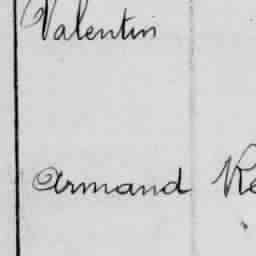 Valentin
Armand